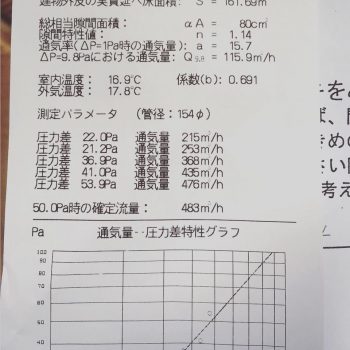 建物外皮の実質延べ床面積: S = 161.69㎡
総相当隙間面積: αA = 80c㎡
隙間特性値: n = 1.14
通気率(ΔP=1Pa時の通気量): a = 15.7
ΔP=9.8Paにおける通気量: Q9.8 = 115.9㎥/h
室内温度: 16.9℃ 係数(b): 0.691
外気温度: 17.8℃
測定パラメータ (管径:154φ)
圧力差 22.0Pa 通気量 215㎥/h
圧力差 21.2Pa 通気量 253㎥/h
圧力差 36.9Pa 通気量 368㎥/h
圧力差 41.0Pa 通気量 435㎥/h
圧力差 53.9Pa 通気量 476㎥/h
50.0Pa時の確定流量: 483㎥/h
Pa 通気量--圧力差特性グラフ
100
90
80
70
60
50
40
ば、
きめの
考え